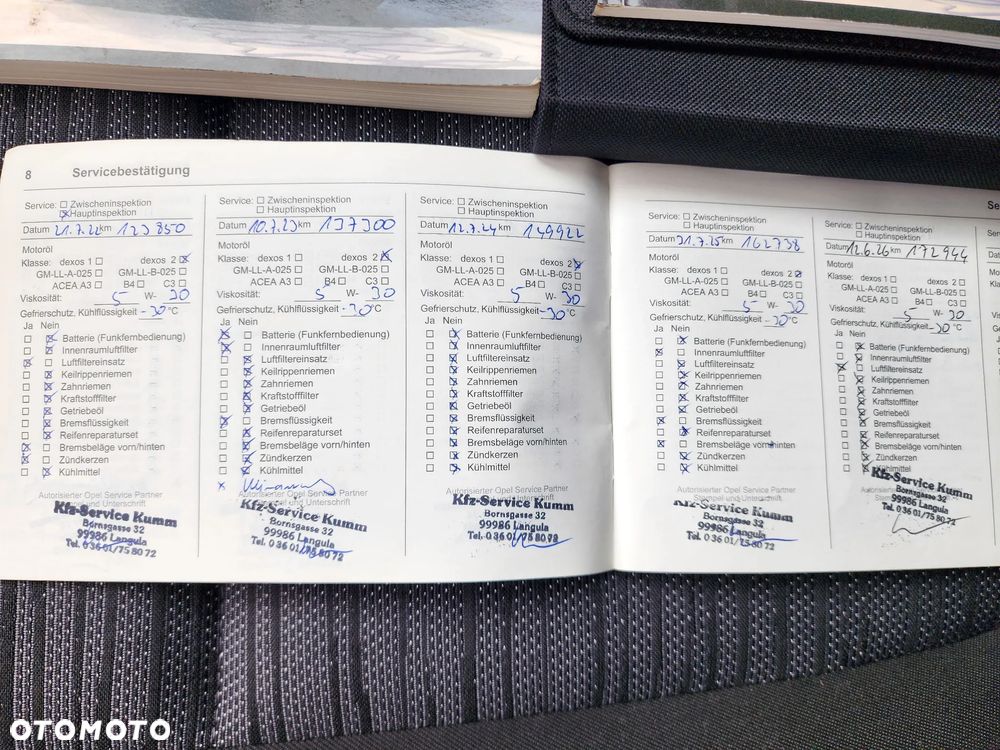 8 Servicebestätigung
Service: Zwischeninspektion
Hauptinspektion
Datum 21.7.22 km 123 850
Motoröl
Klasse: dexos 1 dexos 2
GM-LL-A-025 GM-LL-B-025
ACEA A3 B4 C3
Viskosität: 5 W- 30
Gefrierschutz, Kühlflüssigkeit -30 °C
Ja Nein
Batterie (Funkfernbedienung)
Innenraumluftfilter
Luftfiltereinsatz
Keilrippenriemen
Zahnriemen
Kraftstofffilter
Getriebeöl
Bremsflüssigkeit
Reifenreparaturset
Bremsbeläge vorn/hinten
Zündkerzen
Kühlmittel
Autorisierter Opel Service Partner
Kfz-Service Kumm
Bornsgasse 32
99986 Langula
Tel. 0 36 01/75 80 72
Service: Zwischeninspektion
Hauptinspektion
Datum 10.7.23 km 137300
Motoröl
Klasse: dexos 1 dexos 2
GM-LL-A-025 GM-LL-B-025
ACEA A3 B4 C3
Viskosität: 5 W- 30
Gefrierschutz, Kühlflüssigkeit -30 °C
Ja Nein
Batterie (Funkfernbedienung)
Innenraumluftfilter
Luftfiltereinsatz
Keilrippenriemen
Zahnriemen
Kraftstofffilter
Getriebeöl
Bremsflüssigkeit
Reifenreparaturset
Bremsbeläge vorn/hinten
Zündkerzen
Kühlmittel
Autorisierter Opel Service Partner
Kfz-Service Kumm
Bornsgasse 32
99986 Langula
Tel. 0 36 01/75 80 72
Service: Zwischeninspektion
Hauptinspektion
Datum 12.7.24 km 149922
Motoröl
Klasse: dexos 1 dexos 2
GM-LL-A-025 GM-LL-B-025
ACEA A3 B4 C3
Viskosität: 5 W- 30
Gefrierschutz, Kühlflüssigkeit -30 °C
Ja Nein
Batterie (Funkfernbedienung)
Innenraumluftfilter
Luftfiltereinsatz
Keilrippenriemen
Zahnriemen
Kraftstofffilter
Getriebeöl
Bremsflüssigkeit
Reifenreparaturset
Bremsbeläge vorn/hinten
Zündkerzen
Kühlmittel
Autorisierter Opel Service Partner
Kfz-Service Kumm
Bornsgasse 32
99986 Langula
Tel. 0 36 01/75 80 72
Se
Service: Zwischeninspektion
Hauptinspektion
Datum 31.7.25 km 162738
Motoröl
Klasse: dexos 1 dexos 2
GM-LL-A-025 GM-LL-B-025
ACEA A3 B4 C3
Viskosität: 5 W- 30
Gefrierschutz, Kühlflüssigkeit -30 °C
Ja Nein
Batterie (Funkfernbedienung)
Innenraumluftfilter
Luftfiltereinsatz
Keilrippenriemen
Zahnriemen
Kraftstofffilter
Getriebeöl
Bremsflüssigkeit
Reifenreparaturset
Bremsbeläge vorn/hinten
Zündkerzen
Kühlmittel
Autorisierter Opel Service Partner
Stempel und Unterschrift
Kfz-Service Kumm
Bornsgasse 32
99986 Langula
Tel. 0 36 01/75 80 72
Service: Zwischeninspektion
Hauptinspektion
Datum 12.6.26 km 172944
Motoröl
Klasse: dexos 1 dexos 2
GM-LL-A-025 GM-LL-B-025
ACEA A3 B4 C3
Viskosität: 5 W- 30
Gefrierschutz, Kühlflüssigkeit -30 °C
Ja Nein
Batterie (Funkfernbedienung)
Innenraumluftfilter
Luftfiltereinsatz
Keilrippenriemen
Zahnriemen
Kraftstofffilter
Getriebeöl
Bremsflüssigkeit
Reifenreparaturset
Bremsbeläge vorn/hinten
Zündkerzen
Kühlmittel
Kfz-Service Kumm
Bornsgasse 32
99986 Langula
Tel. 0 36 01/75 80 72
OTOMOTO